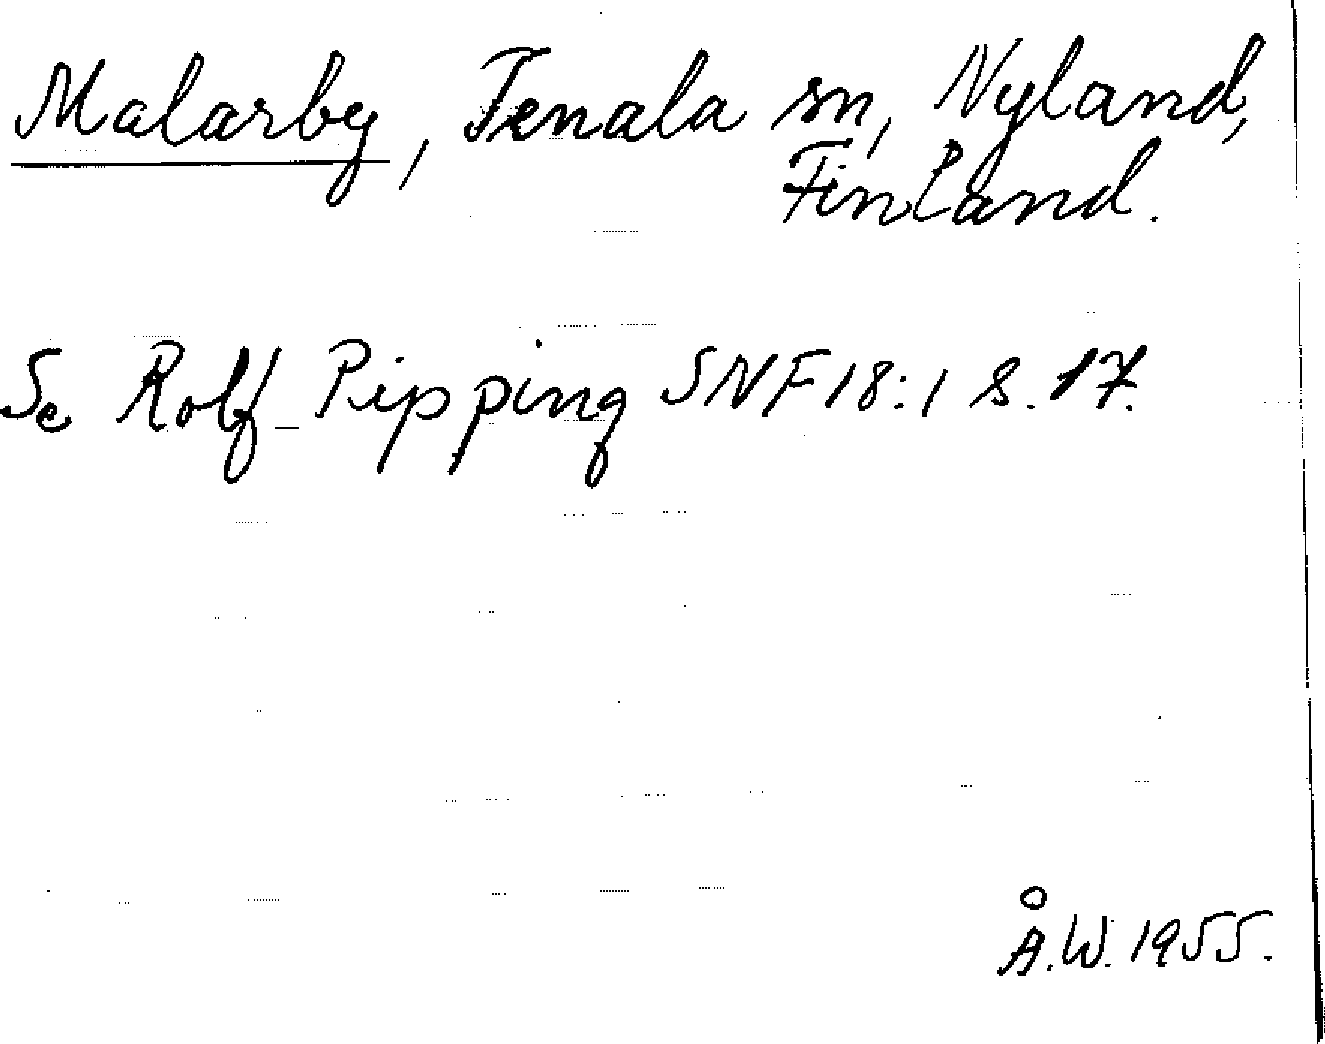 Malarby, Tenala sn, Nyland,
Finland.
Se Rolf Pipping SNF 18:1 S. 17.
Å.W. 1955.